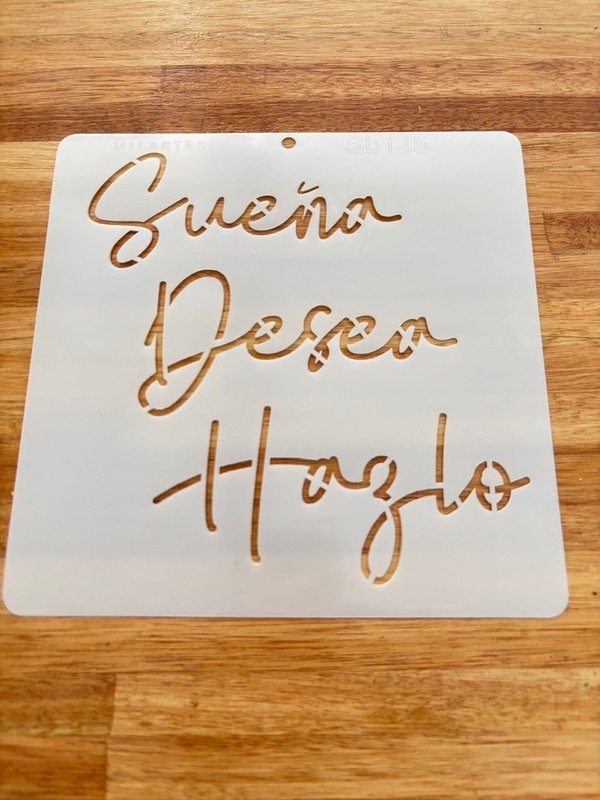 MILARTES Sb145
Sueña
Desea
Hazlo